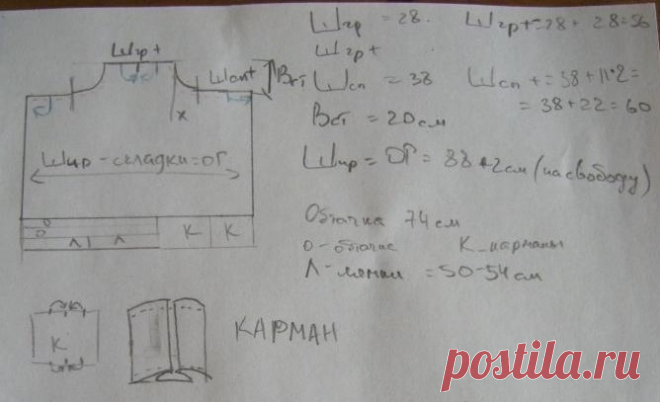 Шгр = 28.
Шгр+ = 28 + 28 = 56
Шгр+
Шсп = 38
Шсп + = 38 + 11·2 =
= 38 + 22 = 60
Вст = 20 см
Шир = ОГ = 88 + 2 см (на свободу)
Обтачка 74 см
о - обтачка К - карманы
Л - лямки = 50-54 см
Шгр+
Шсп+
Вст
х
Шир - складки = ОГ
о
о
Л Л К К
К
КАРМАН
postila.ru